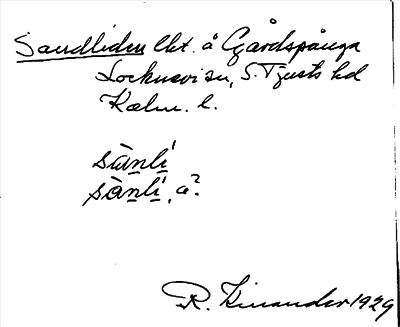 Sandliden lht. å Gårdspånga
Locknevi sn, S. Tjusts hd
Kalm. l.
sànlì
sànlì, a?
R. Kinander 1929